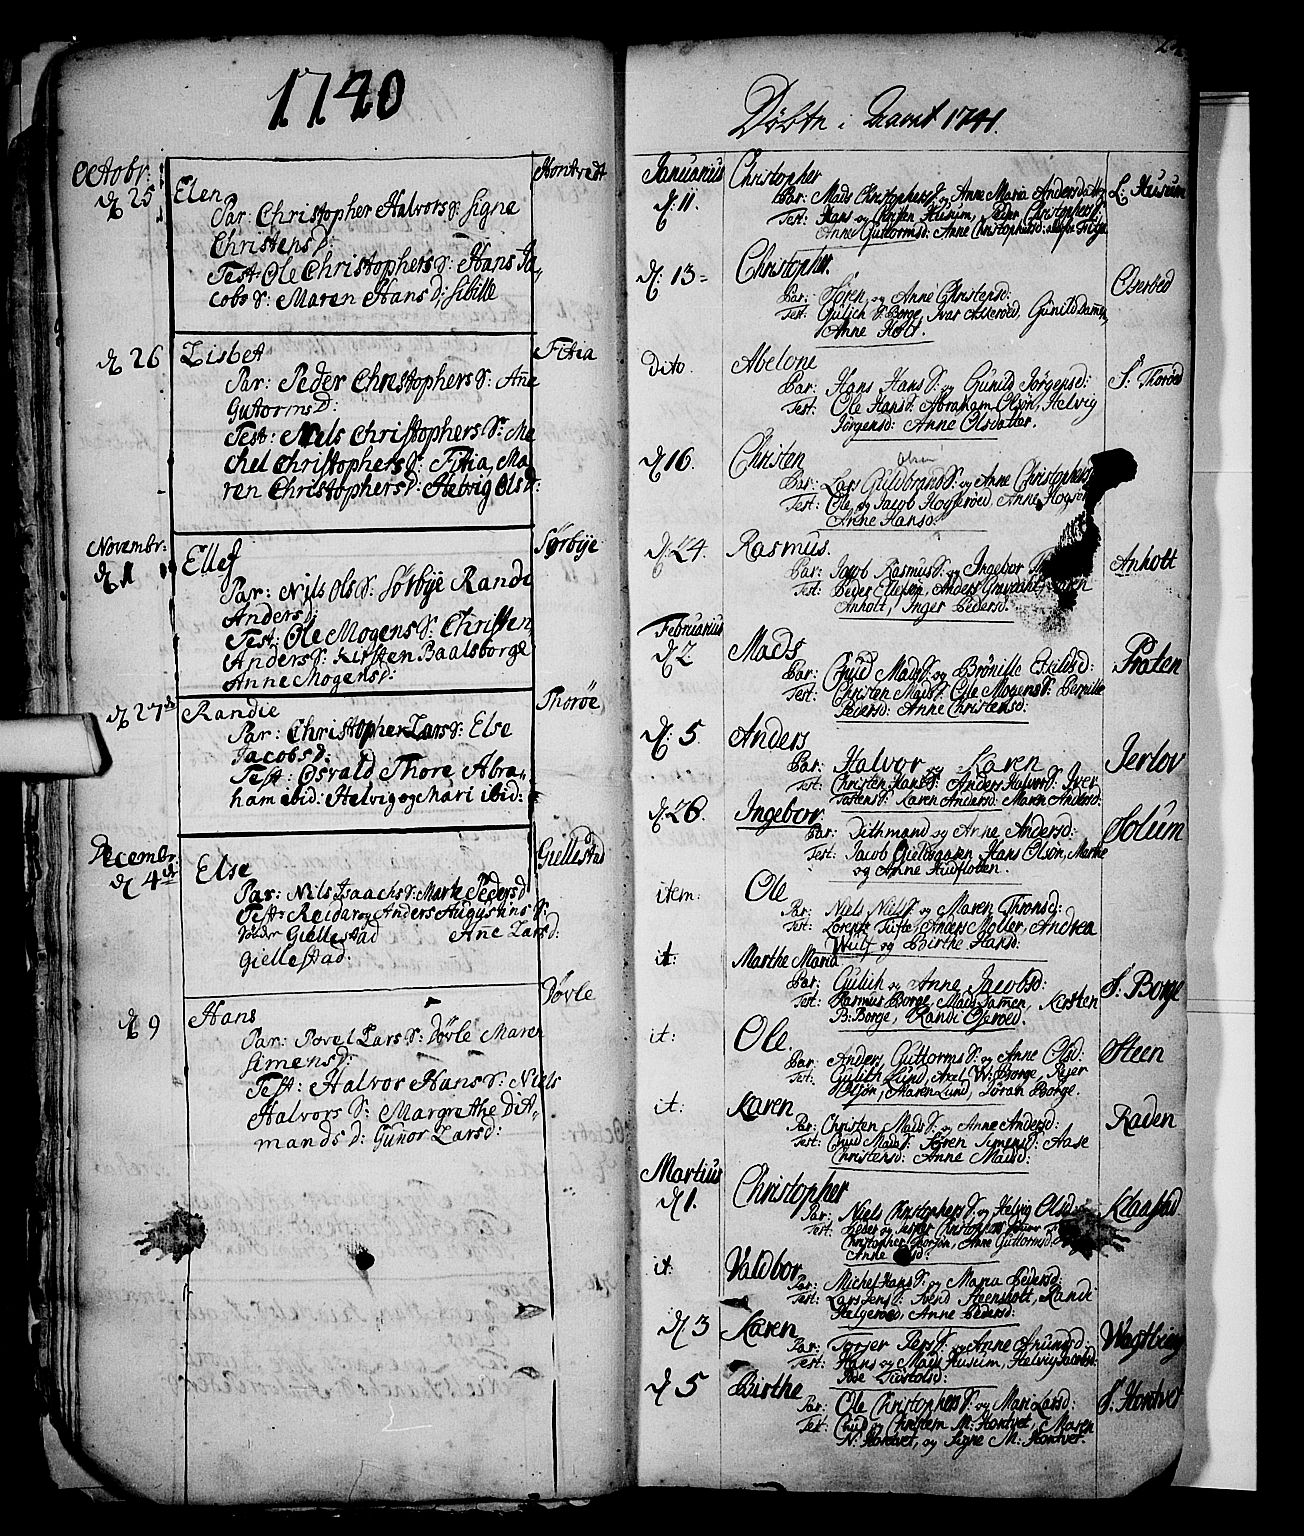 1740
Octobr: Hontvedt
d 25 Elen
Par: Christopher Halvors S: Signe
Christens D:
Test: Ole Christophers S: Hans Ja-
cobs S: Maren Hans d: Sibille
d 26 Lisbet Fitia
Par: Peder Christophers S: Añe
Gutorms D:
Test: Niels Christophers S: Mi
chel Christophers S: Fitia, Ma
ren Christophers D: Helvig Ols D:
Novembr: Sørbÿe
d 1 Ellef
Par: Nils Ols S: Sørbÿe Randi
Anders d:
Test: Ole Mogens S: Christen
Anders S: Kirsten Baalsborge
Anne Mogens d:
d 27 Randie Thorøe
Par: Christopher Lars S: Else
Jacobs D:
Test: Osvald Thore Abra-
ham ibid: Helvig og Mari ibid:
Decembr: Giellestad
d 4 Else
Par: Nils Isaachs S: Marte Peders d
Test: Reidar og Anders Augustins S:
Peder Giellestad Añe Lars d:
Giellestad:
Døvle
d 9 Hans
Par: Povel Lars S: Døvle Maren
Simens D:
Test: Halvor Hans S: Niels
Halvors S: Margrethe Dit-
mands d: Gunor Lars d:
Døbte i Aaret 1741.
Januarius Christopher L: Husum
d: 11. Par: Mads Christophers S: og Anne Maria Andersdatter
Test: Hans og Christen Husum, Peder Christophers S:
Anne Guttormsd: Anne Christophersd:
d: 13 Christopher. Oserød
Par: Søren, og Anne Christensd:
Test: Gulich S: Borge, Ivar Asserød, Gunild Damen,
Anne Holt.
dito. Abelone S: Thorød
Par: Hans Hans S: og Gunild Jørgensd:
Test: Ole Hans S: Abraham Olsøn, Helvig
Jørgensd: Anne Olsdatter.
d 16. Christen
Par: Lars Guldbrands S: og Anne Christophers
Test: Ole, og Jacob Hogserød, Anne
Anne Hansd:
d: 24. Rasmus. Anholt
Par: Jacob Rasmus S: og Ingebor
Test: Peder Ellefsen, Anders Gravdahl,
Anholt, Inger Pedersd.
Februarius
d 2. Mads Praten
Par: Knud Mads S: og Brønille
Test: Christen Mads S: Ole Mogens S: Pernille
Pedersd: Anne Christensd:
d: 5. Anders Jerlov
Par: Halvor og Karen
Test: Christen Hans S: Anders Halvor S: Iver
Torstens S: Karen Andersd: Maren Andersd:
d: 26. Ingebor. Solum
Par: Dithmand og Anne Andersd:
Test: Jacob Hans Olsøn, Marthe
og Anne
item: Ole
Par: Niels Niels S: og Maren Thronsd:
Test: Lorens Anders Møller, Andrea
Wulf og Birthe Hansd:
it: Marthe Maria S: Borge
Par: Gulich og Anne Jacobsd:
Test: Rasmus Borge, Mads Damen, Karsten
B: Borge, Randi Oserød.
it: Ole. Steen
Par: Anders Guttorms S: og Anne Olsd:
Test: Gulich Lund, Axel W: Borge, Peder
Olsøn, Karen Lund, Søran Borge.
it: Karen Raden
Par: Christen Mads S: og Anne Andersd:
Test: Knud Mads S: Søren Simens S: Aase
Christensd: Anne Madsd:
Martius
d 1. Christopher Klaastad
Par: Niels Christophers S: og Helvig Olsd
Test: Peder og Jesper Christophers
Christopher Anne Guttormsd
Anne
it: Valdbor
Par: Michel Hans S: og Maria Pedersd:
Test: Lars Jens S: Svend Steensholt, Randi
Helgerød, Anne Pedersd:
d 3 Karen
Par: Torger Pers S: og Anne Amundsd:
Test: Hans og Mads Husum, Helvig Jacobsd:
d 5 Birthe S: Hontvet
Par: Ole Christophers S: og Mari Larsd:
Test: Knud og Christen M: Hontvet, Maren
N: Hontvet, og Signe M: Hontvet.